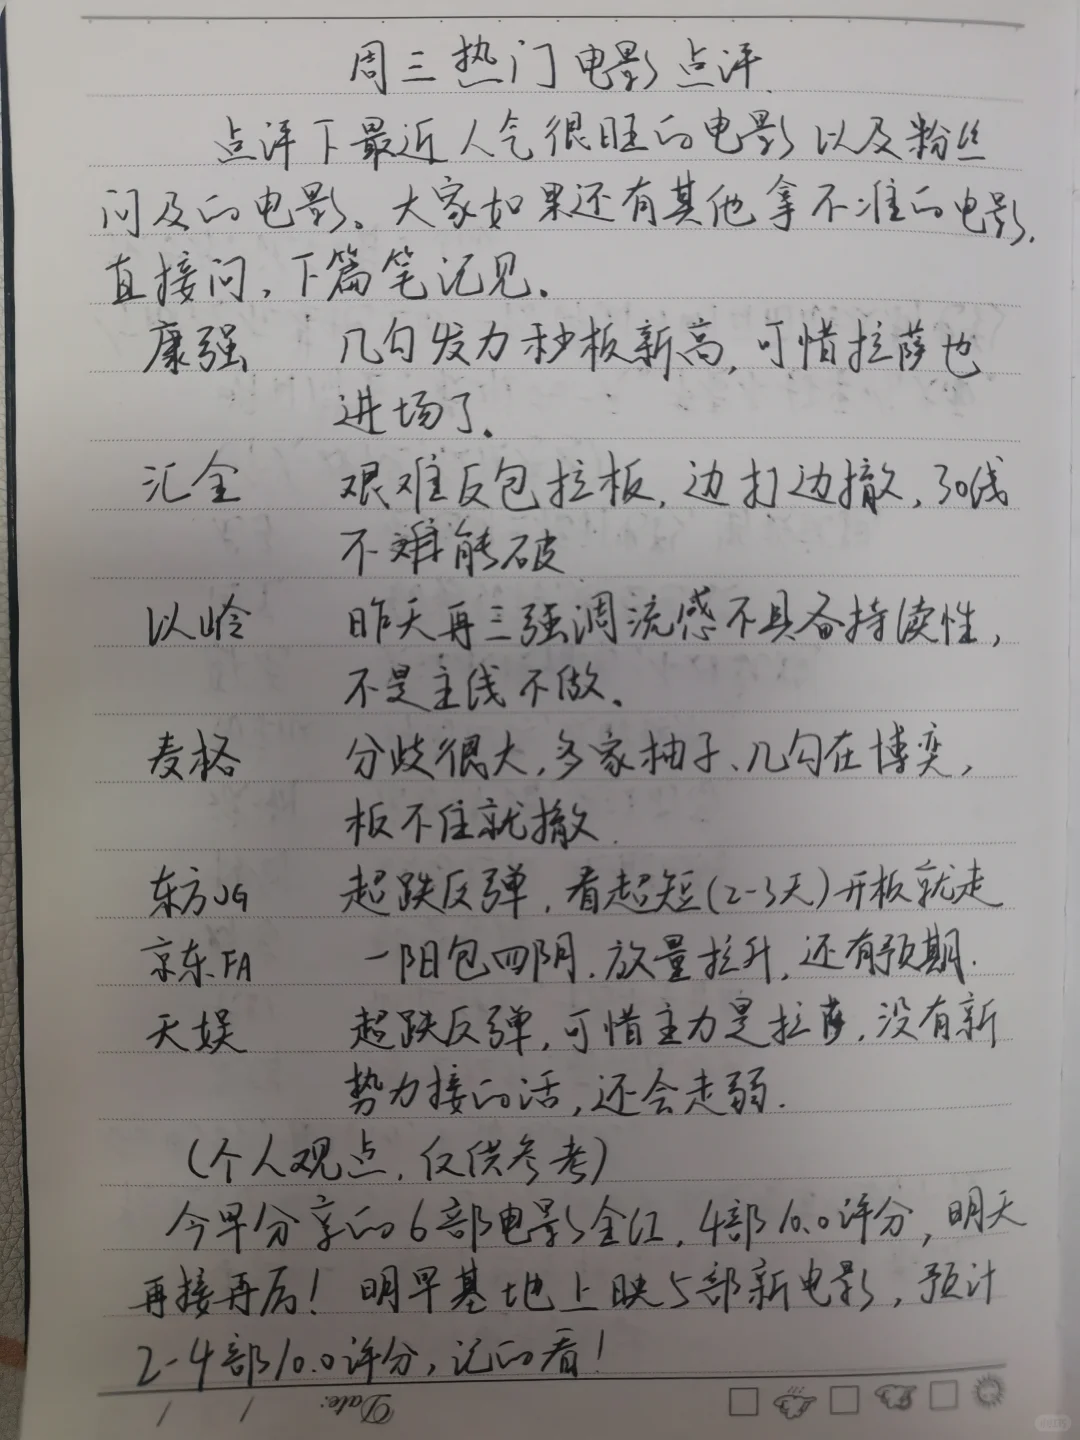 周三热门电影点评.
点评下最近人气很旺的电影以及粉丝
问及的电影。大家如果还有其他拿不准的电影,
直接问,下篇笔记见.
康强 几句发力秒板新高,可惜拉萨也
进场了.
汇全 艰难反包拉板,边打边撤,30线
不难能破
以岭 昨天再三强调流感不具备持读性,
不是主线不做.
麦格 分歧很大,多家柚子、几句在博奕,
板不住就撤.
东方JG 超跌反弹,看超短(2-3天)开板就走
京东FA 一阳包四阴.放量拉升,还有预期.
天娱 超跌反弹,可惜主力是拉萨,没有新
势力接的话,还会走弱.
(个人观点,仅供参考)
今早分享的6部电影全红,4部10.0评分,明天
再接再厉!明早基地上映5部新电影,预计
2-4部10.0评分,记的看!
Date: / /